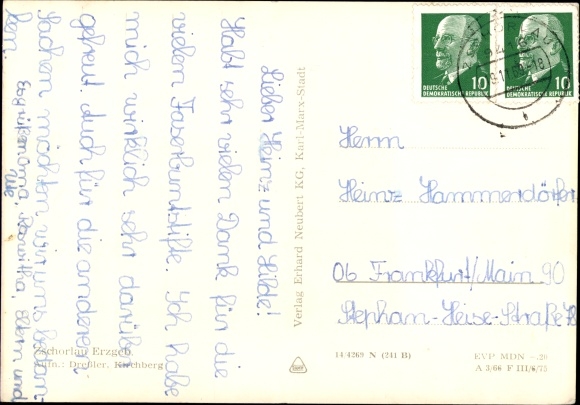 Lieber Heinz und Hilde!
Habt sehr vielen Dank für die
vielen Faserbundstifte. Ich habe
mich wirklich sehr darüber
gefreut. Auch für die anderen
Sachen möchten wir uns bedan-
ken.
Es grüßen Oma, Eltern und
Ute
Zschorlau Erzgeb.
Aufn.: Dreßler, Kirchberg
Verlag Erhard Neubert KG, Karl-Marx-Stadt
10
DEUTSCHE
DEMOKRATISCHE REPUBLIK
10
DEUTSCHE
DEMOKRATISCHE REPUBLIK
Herrn
Heinz Hammerdörfer
06 Frankfurt/Main 90
Stephan-Heise-Straße
14/4269 N (241 B)
EVP MDN -.20
A 3/66 F III/6/75